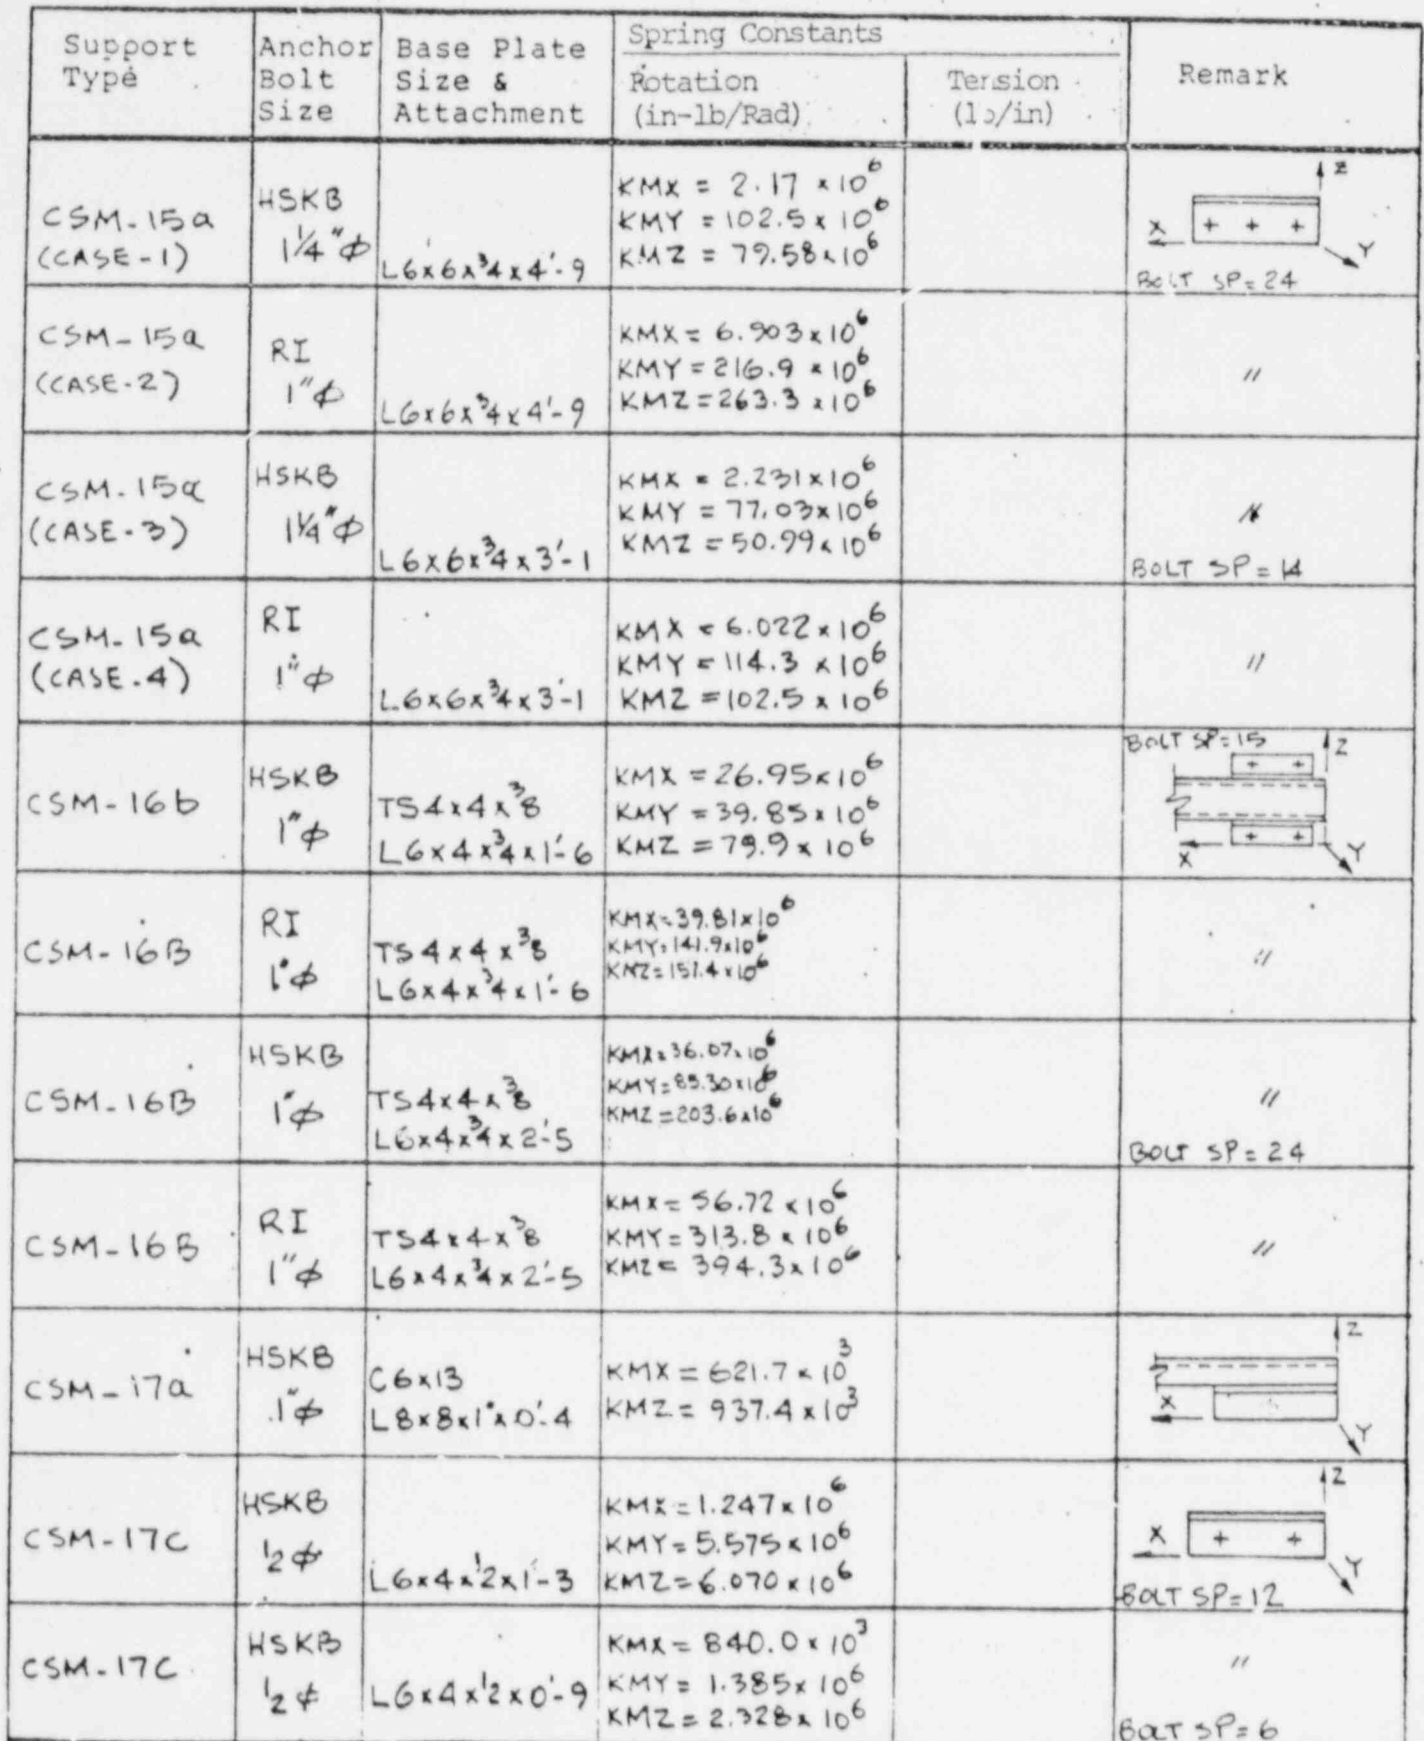 Support Type
Anchor Bolt Size
Base Plate Size & Attachment
Spring Constants
Rotation (in-lb/Rad)
Tension (lb/in)
Remark
CSM-15a
(CASE-1)
HSKB
1¼"φ
L6x6x¾x4'-9
KMX = 2.17 x 10⁶
KMY = 102.5 x 10⁶
KMZ = 79.58 x 10⁶
Z
X
+ + +
Y
BOLT SP=24
CSM-15a
(CASE-2)
RI
1"φ
L6x6x¾x4'-9
KMX = 6.903 x 10⁶
KMY = 216.9 x 10⁶
KMZ = 263.3 x 10⁶
"
CSM-15a
(CASE-3)
HSKB
1¼"φ
L6x6x¾x3'-1
KMX = 2.231 x 10⁶
KMY = 77.03 x 10⁶
KMZ = 50.99 x 10⁶
"
BOLT SP = 14
CSM-15a
(CASE-4)
RI
1"φ
L6x6x¾x3'-1
KMX = 6.022 x 10⁶
KMY = 114.3 x 10⁶
KMZ = 102.5 x 10⁶
"
CSM-16b
HSKB
1"φ
TS4x4x⅜
L6x4x¾x1'-6
KMX = 26.95 x 10⁶
KMY = 39.85 x 10⁶
KMZ = 79.9 x 10⁶
BOLT SP=15
Z
+ +
+ +
X
Y
CSM-16B
RI
1"φ
TS4x4x⅜
L6x4x¾x1'-6
KMX=39.81x10⁶
KMY=141.9x10⁶
KMZ=157.4x10⁶
"
CSM-16B
HSKB
1"φ
TS4x4x⅜
L6x4x¾x2'-5
KMX=36.07x10⁶
KMY=85.30x10⁶
KMZ=203.6x10⁶
"
BOLT SP=24
CSM-16B
RI
1"φ
TS4x4x⅜
L6x4x¾x2'-5
KMX = 56.72 x 10⁶
KMY = 313.8 x 10⁶
KMZ = 394.3 x 10⁶
"
CSM-17a
HSKB
1"φ
C6x13
L8x8x1"x0'-4
KMX = 621.7 x 10³
KMZ = 937.4 x 10³
Z
X
Y
CSM-17C
HSKB
½φ
L6x4x½x1'-3
KMX = 1.247 x 10⁶
KMY = 5.575 x 10⁶
KMZ = 6.070 x 10⁶
Z
X
+ +
Y
BOLT SP=12
CSM-17C
HSKB
½φ
L6x4x½x0'-9
KMX = 840.0 x 10³
KMY = 1.385 x 10⁶
KMZ = 2.328 x 10⁶
"
BOLT SP=6